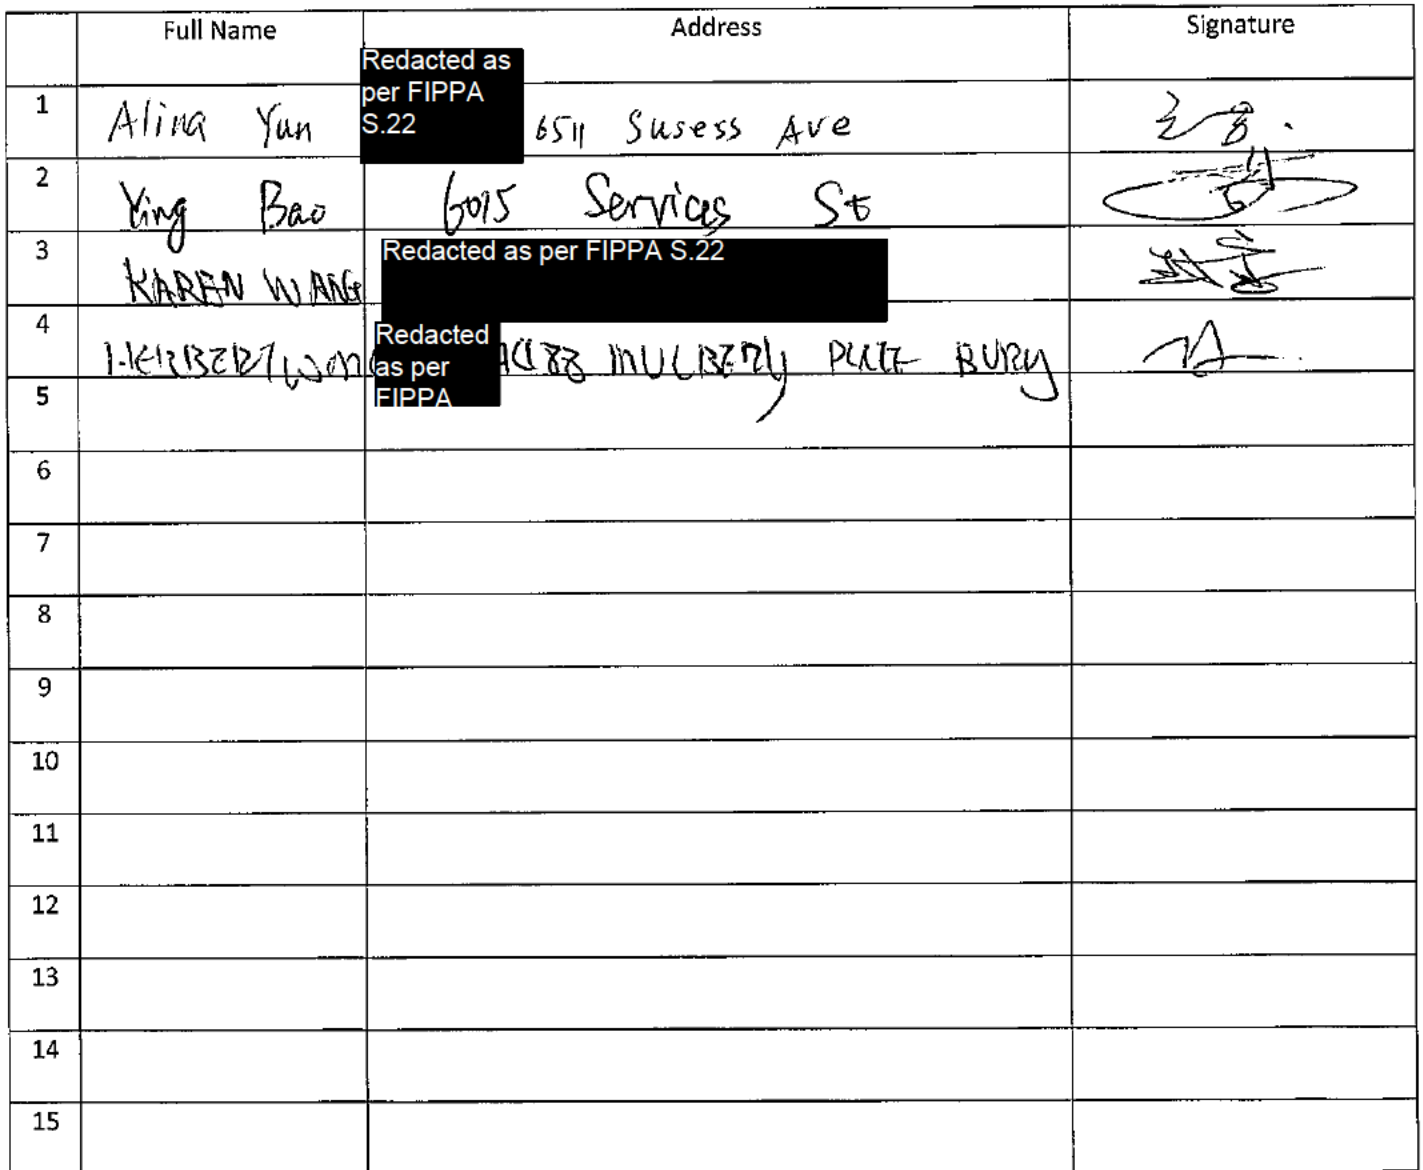 Full Name Address Signature
Redacted as
per FIPPA
S.22
1 Alina Yun 6511 Susess Ave
2 Ying Bao 6015 Services St
3 KAREN WANG Redacted as per FIPPA S.22
4 HERBERT Redacted
as per
FIPPA
MULBERRY BURY
5
6
7
8
9
10
11
12
13
14
15